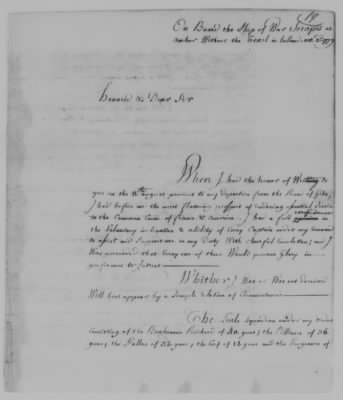 19
On Board the Ship of War Serapis at
anchor Without the Texel in Holland Oct. 3d 1779
Honored & Dear Sir
When I had the honor of Writing to
you on the 11th august previous to my departure from the Road of Groa,
I had before me the most flattering prospect of rendering essential Service
to the Common Cause of France & America. I had a full confidence
in the Voluntary inclination & ability of every Captain under my Command
to assist and Support me in my Duty With cheerful Emulation; and I
Was persuaded that every one of them Would pursue Glory in
preference to Interest
Whither I Was or Was not deceived
Will best appear by a Simple relation of Circumstances
The Little Squadron under my orders
consisting of the Bonhomme Richard of 40 guns; the Alliance of 36
guns; the Pallas of 32 guns; the Cerf of 18 guns and the Vengeance of